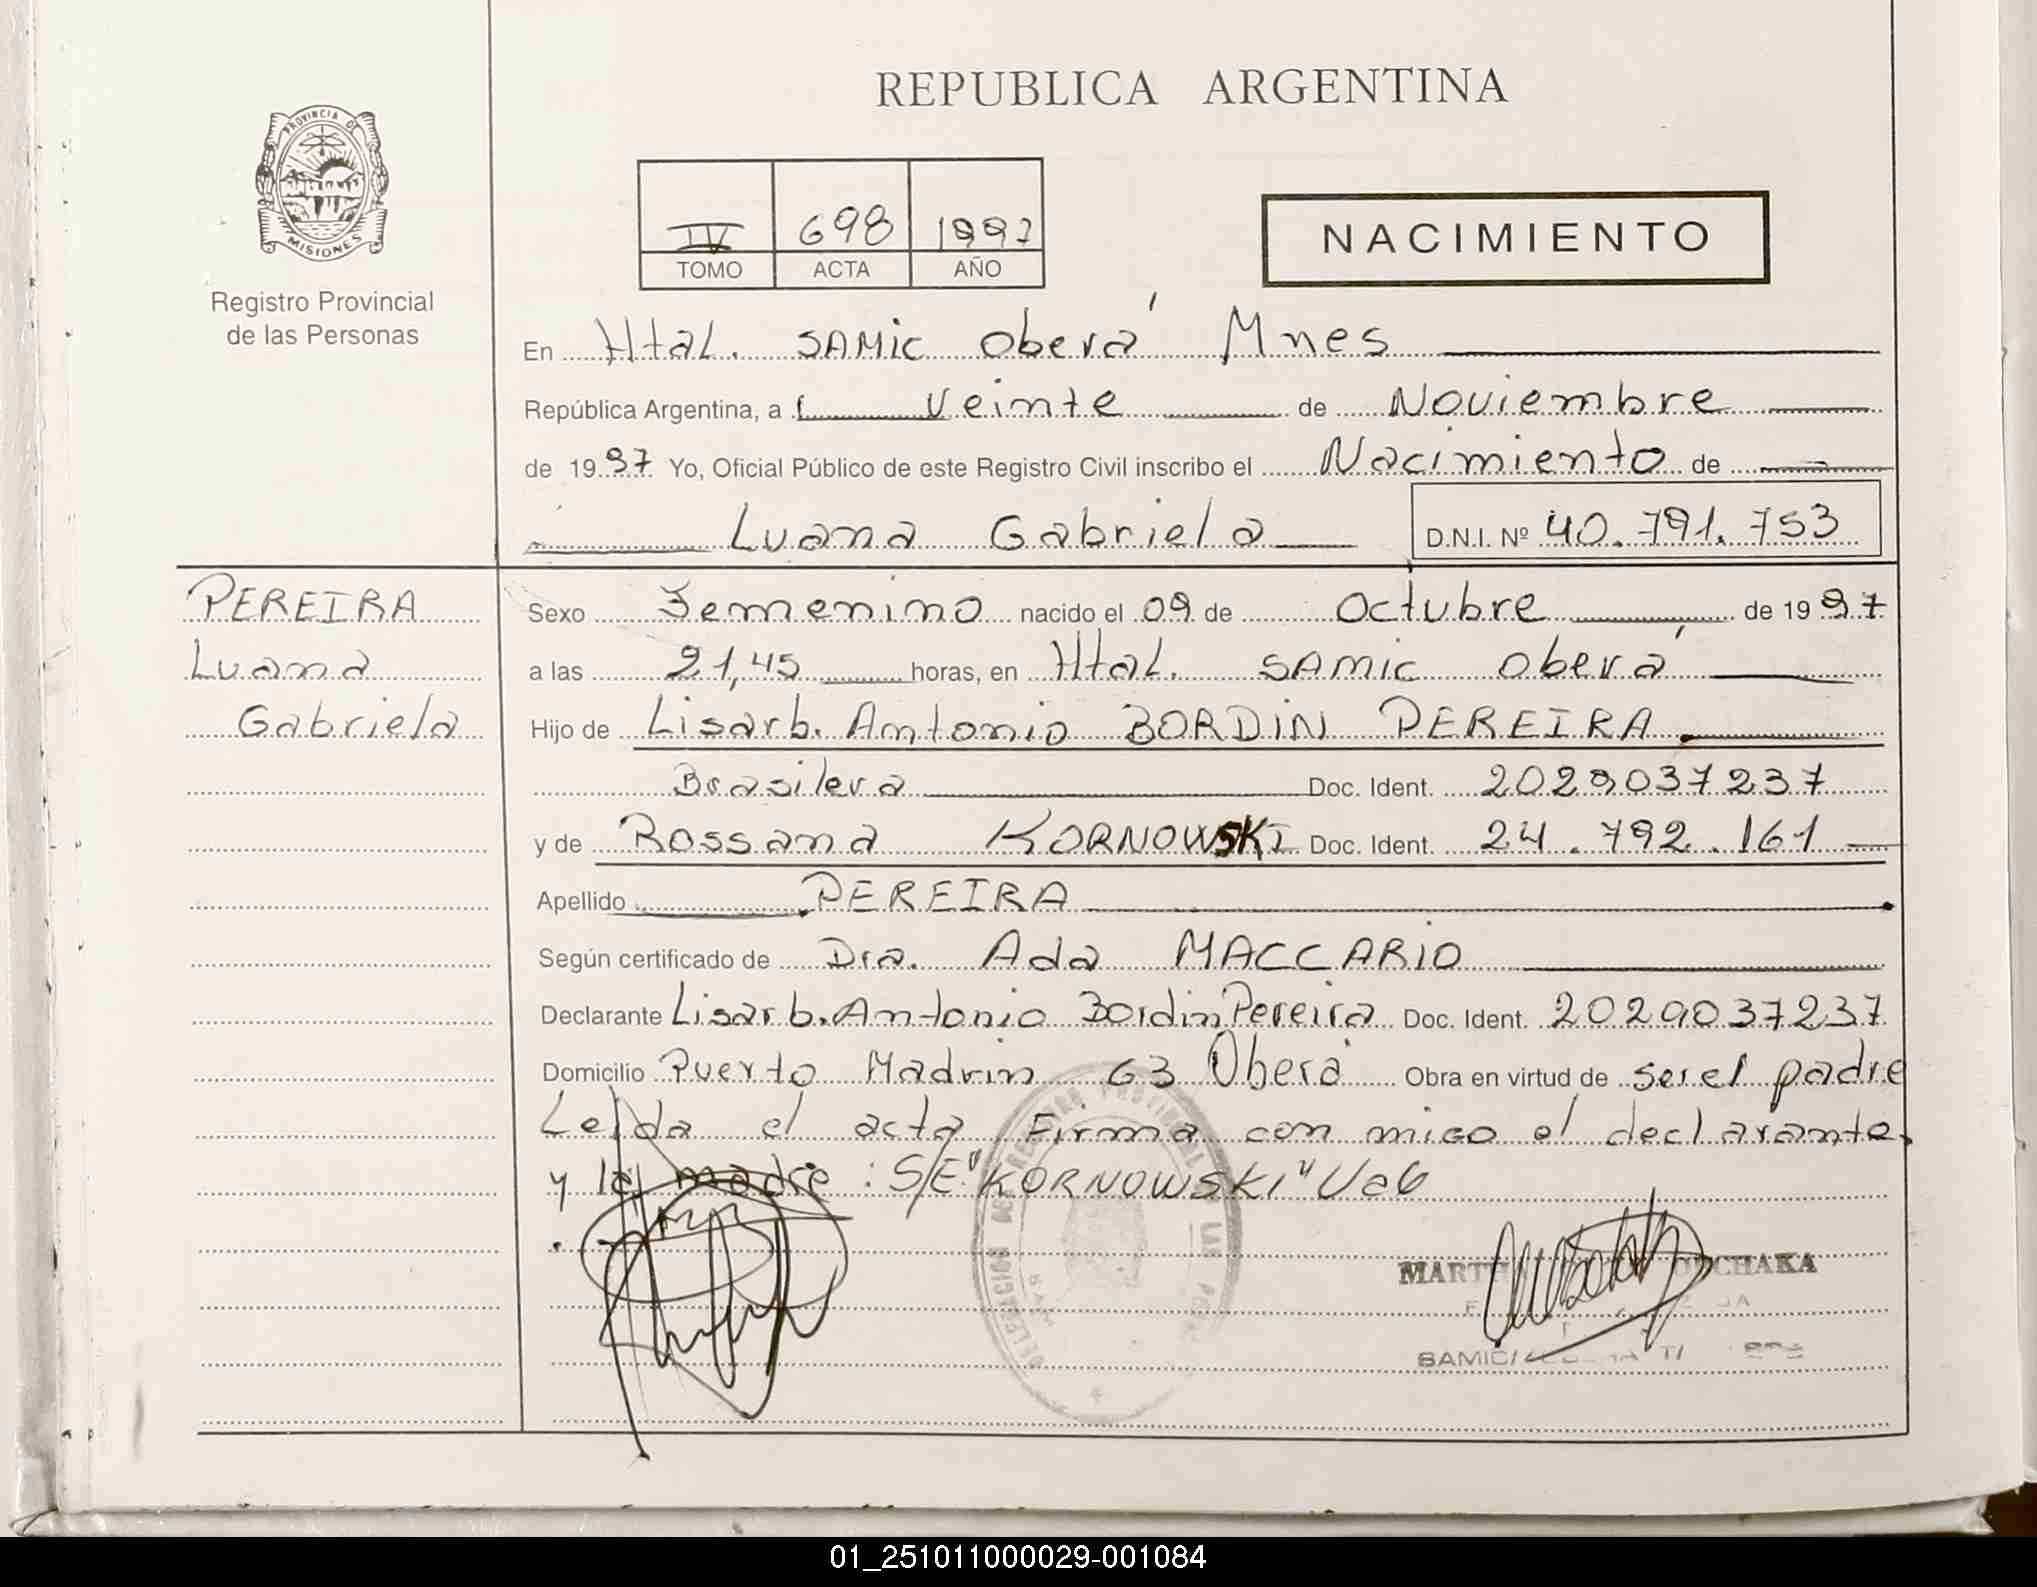 REPUBLICA ARGENTINA
PROVINCIA DE
MISIONES
Registro Provincial
de las Personas
IV 698 1997
TOMO ACTA AÑO
NACIMIENTO
En Htal. SAMIC Oberá Mnes
República Argentina, a Veinte de Noviembre
de 1997 Yo, Oficial Público de este Registro Civil inscribo el Nacimiento de
Luana Gabriela D.N.I. Nº 40.791.753
PEREIRA
Luana
Gabriela
Sexo Femenino nacido el 09 de Octubre de 1997
a las 21,45 horas, en Htal. SAMIC Oberá
Hijo de Lisarb. Antonio BORDIN PEREIRA
Brasilera Doc. Ident. 2029037237
y de Rossana KORNOWSKI Doc. Ident. 24.792.161
Apellido PEREIRA
Según certificado de Dra. Ada MACCARIO
Declarante Lisarb. Antonio Bordin Pereira Doc. Ident. 2029037237
Domicilio Puerto Madrin 63 Oberá Obra en virtud de ser el padre
Leida el acta Firma con migo el declarante
y la madre : S/E "KORNOWSKI" Vale
DELEGACION REGISTRO PROVINCIAL LAS
SAMIC
01_251011000029-001084